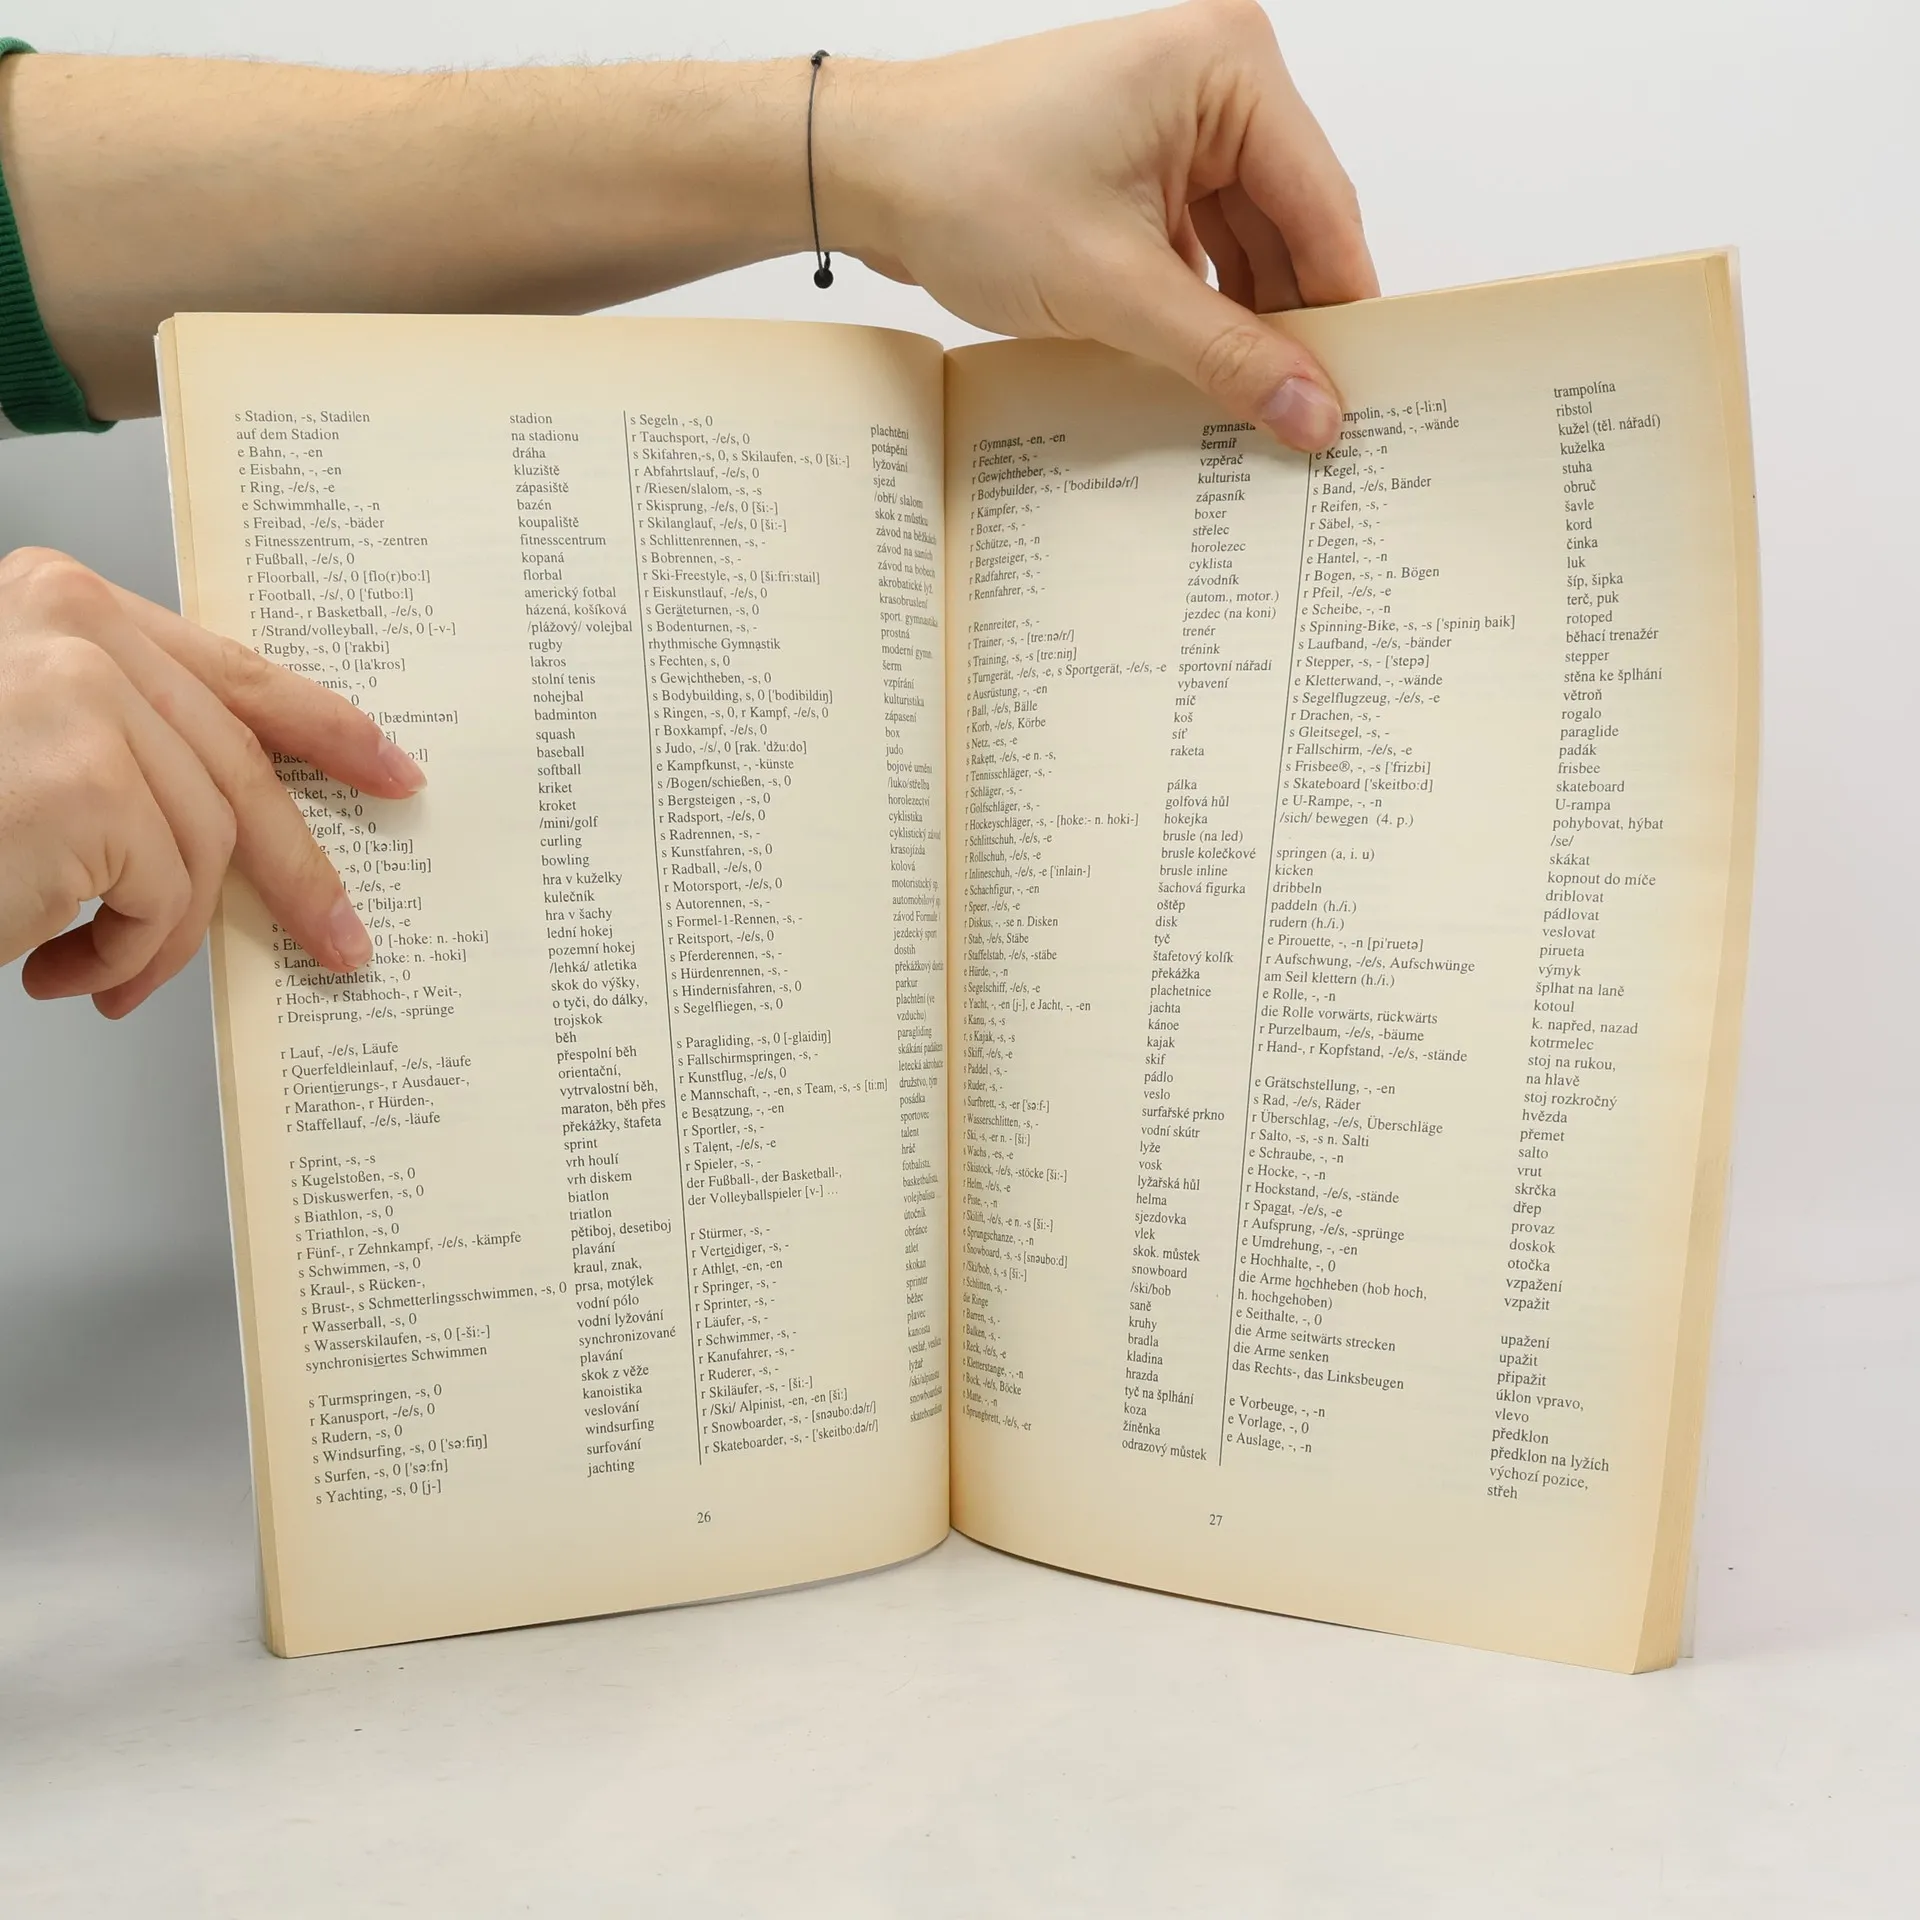 s Stadion, -s, Stadien
auf dem Stadion
e Bahn, -, -en
e Eisbahn, -, -en
r Ring, -/e/s, -e
e Schwimmhalle, -, -n
s Freibad, -/e/s, -bäder
s Fitnesszentrum, -s, -zentren
r Fußball, -/e/s, 0
r Floorball, -/s/, 0 [flo(r)bo:l]
r Football, -/s/, 0 ['futbo:l]
r Hand-, r Basketball, -/e/s, 0
r /Strand/volleyball, -/e/s, 0 [-v-]
s Rugby, -s, 0 ['rakbi]
[la'kros]
-, 0
0
[bædmintən]
Softball,
-s, 0
-s, 0
/golf, -s, 0
-s, 0 ['kə:liŋ]
-s, 0 ['bəu:liŋ]
-/e/s, -e
-e ['bilja:rt]
-/e/s, -e
0 [-hoke: n. -hoki]
[-hoke: n. -hoki]
e /Leicht/athletik, -, 0
r Hoch-, r Stabhoch-, r Weit-,
r Dreisprung, -/e/s, -sprünge
r Lauf, -/e/s, Läufe
r Querfeldeinlauf, -/e/s, -läufe
r Orientierungs-, r Ausdauer-,
r Marathon-, r Hürden-,
r Staffellauf, -/e/s, -läufe
r Sprint, -s, -s
s Kugelstoßen, -s, 0
s Diskuswerfen, -s, 0
s Biathlon, -s, 0
s Triathlon, -s, 0
r Fünf-, r Zehnkampf, -/e/s, -kämpfe
s Schwimmen, -s, 0
s Kraul-, s Rücken-,
s Brust-, s Schmetterlingsschwimmen, -s, 0
r Wasserball, -s, 0
s Wasserskilaufen, -s, 0 [-ši:-]
synchronisiertes Schwimmen
s Turmspringen, -s, 0
r Kanusport, -/e/s, 0
s Rudern, -s, 0
s Windsurfing, -s, 0 ['sə:fiŋ]
s Surfen, -s, 0 ['sə:fn]
s Yachting, -s, 0 [j-]
stadion
na stadionu
dráha
kluziště
zápasiště
bazén
koupaliště
fitnesscentrum
kopaná
florbal
americký fotbal
házená, košíková
/plážový/ volejbal
rugby
lakros
stolní tenis
nohejbal
badminton
squash
baseball
softball
kriket
kroket
/mini/golf
curling
bowling
hra v kuželky
kulečník
hra v šachy
lední hokej
pozemní hokej
/lehká/ atletika
skok do výšky,
o tyči, do dálky,
trojskok
běh
přespolní běh
orientační,
vytrvalostní běh,
maraton, běh přes
překážky, štafeta
sprint
vrh koulí
vrh diskem
biatlon
triatlon
pětiboj, desetiboj
plavání
kraul, znak,
prsa, motýlek
vodní pólo
vodní lyžování
synchronizované
plavání
skok z věže
kanoistika
veslování
windsurfing
surfování
jachting
s Segeln , -s, 0
r Tauchsport, -/e/s, 0
s Skifahren,-s, 0, s Skilaufen, -s, 0 [ši:-]
r Abfahrtslauf, -/e/s, 0
r /Riesen/slalom, -s, -s
r Skisprung, -/e/s, 0 [ši:-]
r Skilanglauf, -/e/s, 0 [ši:-]
s Schlittenrennen, -s, -
s Bobrennen, -s, -
r Ski-Freestyle, -s, 0 [ši:fri:stail]
r Eiskunstlauf, -/e/s, 0
s Geräteturnen, -s, 0
s Bodenturnen, -s, -
rhythmische Gymnastik
s Fechten, s, 0
s Gewichtheben, -s, 0
s Bodybuilding, s, 0 ['bodibildiŋ]
s Ringen, -s, 0, r Kampf, -/e/s, 0
r Boxkampf, -/e/s, 0
s Judo, -/s/, 0 [rak. 'džu:do]
e Kampfkunst, -, -künste
s /Bogen/schießen, -s, 0
s Bergsteigen , -s, 0
r Radsport, -/e/s, 0
s Radrennen, -s, -
s Kunstfahren, -s, 0
r Radball, -/e/s, 0
r Motorsport, -/e/s, 0
s Autorennen, -s, -
s Formel-1-Rennen, -s, -
r Reitsport, -/e/s, 0
s Pferderennen, -s, -
s Hürdenrennen, -s, -
s Hindernisfahren, -s, 0
s Segelfliegen, -s, 0
s Paragliding, -s, 0 [-glaidiŋ]
s Fallschirmspringen, -s, -
r Kunstflug, -/e/s, 0
e Mannschaft, -, -en, s Team, -s, -s [ti:m]
e Besatzung, -, -en
r Sportler, -s, -
s Talent, -/e/s, -e
r Spieler, -s, -
der Fußball-, der Basketball-,
der Volleyballspieler [v-] ...
r Stürmer, -s, -
r Verteidiger, -s, -
r Athlet, -en, -en
r Springer, -s, -
r Sprinter, -s, -
r Läufer, -s, -
r Schwimmer, -s, -
r Kanufahrer, -s, -
r Ruderer, -s, -
r Skiläufer, -s, - [ši:-]
r /Ski/ Alpinist, -en, -en [ši:]
r Snowboarder, -s, - [snəubo:də/r/]
r Skateboarder, -s, - ['skeitbo:də/r/]
plachtění
potápění
lyžování
sjezd
/obří/ slalom
skok z můstku
závod na běžkách
závod na saních
závod na bobech
akrobatické lyž.
krasobruslení
sport. gymnastika
prostná
moderní gymn.
šerm
vzpírání
kulturistika
zápasení
box
judo
bojové umění
/luko/střelba
horolezectví
cyklistika
cyklistický závod
krasojízda
kolová
motoristický sp.
automobilový sp.
závod Formule 1
jezdecký sport
dostih
překážkový dostih
parkur
plachtění (ve
vzduchu)
paragliding
skákání padákem
letecká akrobacie
družstvo, tým
posádka
sportovec
talent
hráč
fotbalista,
basketbalista,
volejbalista ...
útočník
obránce
atlet
skokan
sprinter
běžec
plavec
kanoista
veslař, veslice
lyžař
/ski/alpinista
snowboardista
skateboardista
26
r Gymnast, -en, -en
r Fechter, -s, -
r Gewichtheber, -s, -
r Bodybuilder, -s, - ['bodibildə/r/]
r Kämpfer, -s, -
r Boxer, -s, -
r Schütze, -n, -n
r Bergsteiger, -s, -
r Radfahrer, -s, -
r Rennfahrer, -s, -
r Rennreiter, -s, -
r Trainer, -s, - [tre:nə/r/]
s Training, -s, -s [tre:niŋ]
s Turngerät, -/e/s, -e, s Sportgerät, -/e/s, -e
e Ausrüstung, -, -en
r Ball, -/e/s, Bälle
r Korb, -/e/s, Körbe
s Netz, -es, -e
s Rakett, -/e/s, -e n. -s,
r Tennisschläger, -s, -
r Schläger, -s, -
r Golfschläger, -s, -
r Hockeyschläger, -s, - [hoke:- n. hoki-]
r Schlittschuh, -/e/s, -e
r Rollschuh, -/e/s, -e
r Inlineschuh, -/e/s, -e ['inlain-]
e Schachfigur, -, -en
r Speer, -/e/s, -e
r Diskus, -, -se n. Disken
r Stab, -/e/s, Stäbe
r Staffelstab, -/e/s, -stäbe
e Hürde, -, -n
s Segelschiff, -/e/s, -e
e Yacht, -, -en [j-], e Jacht, -, -en
s Kanu, -s, -s
r, s Kajak, -s, -s
s Skiff, -/e/s, -e
s Paddel , -s, -
s Ruder, -s, -
s Surfbrett, -s, -er ['sə:f-]
r Wasserschlitten, -s, -
r Ski, -s, -er n. - [ši:]
s Wachs , -es, -e
r Skistock, -/e/s, -stöcke [ši:-]
r Helm, -/e/s, -e
e Piste, -, -n
r Skilift, -/e/s, -e n. -s [ši:-]
e Sprungschanze, -, -n
s Snowboard, -s, -s [snəubo:d]
r /Ski/bob, s, -s [ši:-]
r Schlitten, -s, -
die Ringe
r Barren, -s, -
r Balken, -s, -
s Reck, -/e/s, -e
e Kletterstange, -, -n
r Bock, -/e/s, Böcke
e Matte, -, -n
s Sprungbrett, -/e/s, -er
gymnasta
šermíř
vzpěrač
kulturista
zápasník
boxer
střelec
horolezec
cyklista
závodník
(autom., motor.)
jezdec (na koni)
trenér
trénink
sportovní nářadí
vybavení
míč
koš
síť
raketa
pálka
golfová hůl
hokejka
brusle (na led)
brusle kolečkové
brusle inline
šachová figurka
oštěp
disk
tyč
štafetový kolík
překážka
plachetnice
jachta
kánoe
kajak
skif
pádlo
veslo
surfařské prkno
vodní skútr
lyže
vosk
lyžařská hůl
helma
sjezdovka
vlek
skok. můstek
snowboard
/ski/bob
saně
kruhy
bradla
kladina
hrazda
tyč na šplhání
koza
žíněnka
odrazový můstek
-s, -e [-li:n]
-, -wände
e Keule, -, -n
r Kegel, -s, -
s Band, -/e/s, Bänder
r Reifen, -s, -
r Säbel, -s, -
r Degen, -s, -
e Hantel, -, -n
r Bogen, -s, - n. Bögen
r Pfeil, -/e/s, -e
e Scheibe, -, -n
s Spinning-Bike, -s, -s ['spiniŋ baik]
s Laufband, -/e/s, -bänder
r Stepper, -s, - ['stepə]
e Kletterwand, -, -wände
s Segelflugzeug, -/e/s, -e
r Drachen, -s, -
s Gleitsegel, -s, -
r Fallschirm, -/e/s, -e
s Frisbee®, -, -s ['frizbi]
s Skateboard ['skeitbo:d]
e U-Rampe, -, -n
/sich/ bewegen (4. p.)
springen (a, i. u)
kicken
dribbeln
paddeln (h./i.)
rudern (h./i.)
e Pirouette, -, -n [pi'ruetə]
r Aufschwung, -/e/s, Aufschwünge
am Seil klettern (h./i.)
e Rolle, -, -n
die Rolle vorwärts, rückwärts
r Purzelbaum, -/e/s, -bäume
r Hand-, r Kopfstand, -/e/s, -stände
e Grätschstellung, -, -en
s Rad, -/e/s, Räder
r Überschlag, -/e/s, Überschläge
r Salto, -s, -s n. Salti
e Schraube, -, -n
e Hocke, -, -n
r Hockstand, -/e/s, -stände
r Spagat, -/e/s, -e
r Aufsprung, -/e/s, -sprünge
e Umdrehung, -, -en
e Hochhalte, -, 0
die Arme hochheben (hob hoch,
h. hochgehoben)
e Seithalte, -, 0
die Arme seitwärts strecken
die Arme senken
das Rechts-, das Linksbeugen
e Vorbeuge, -, -n
e Vorlage, -, 0
e Auslage, -, -n
trampolína
ribstol
kužel (těl. nářadí)
kuželka
stuha
obruč
šavle
kord
činka
luk
šíp, šipka
terč, puk
rotoped
běhací trenažér
stepper
stěna ke šplhání
větroň
rogalo
paraglide
padák
frisbee
skateboard
U-rampa
pohybovat, hýbat
/se/
skákat
kopnout do míče
driblovat
pádlovat
veslovat
pirueta
výmyk
šplhat na laně
kotoul
k. napřed, nazad
kotrmelec
stoj na rukou,
na hlavě
stoj rozkročný
hvězda
přemet
salto
vrut
skrčka
dřep
provaz
doskok
otočka
vzpažení
vzpažit
upažení
upažit
připažit
úklon vpravo,
vlevo
předklon
předklon na lyžích
výchozí pozice,
střeh
27